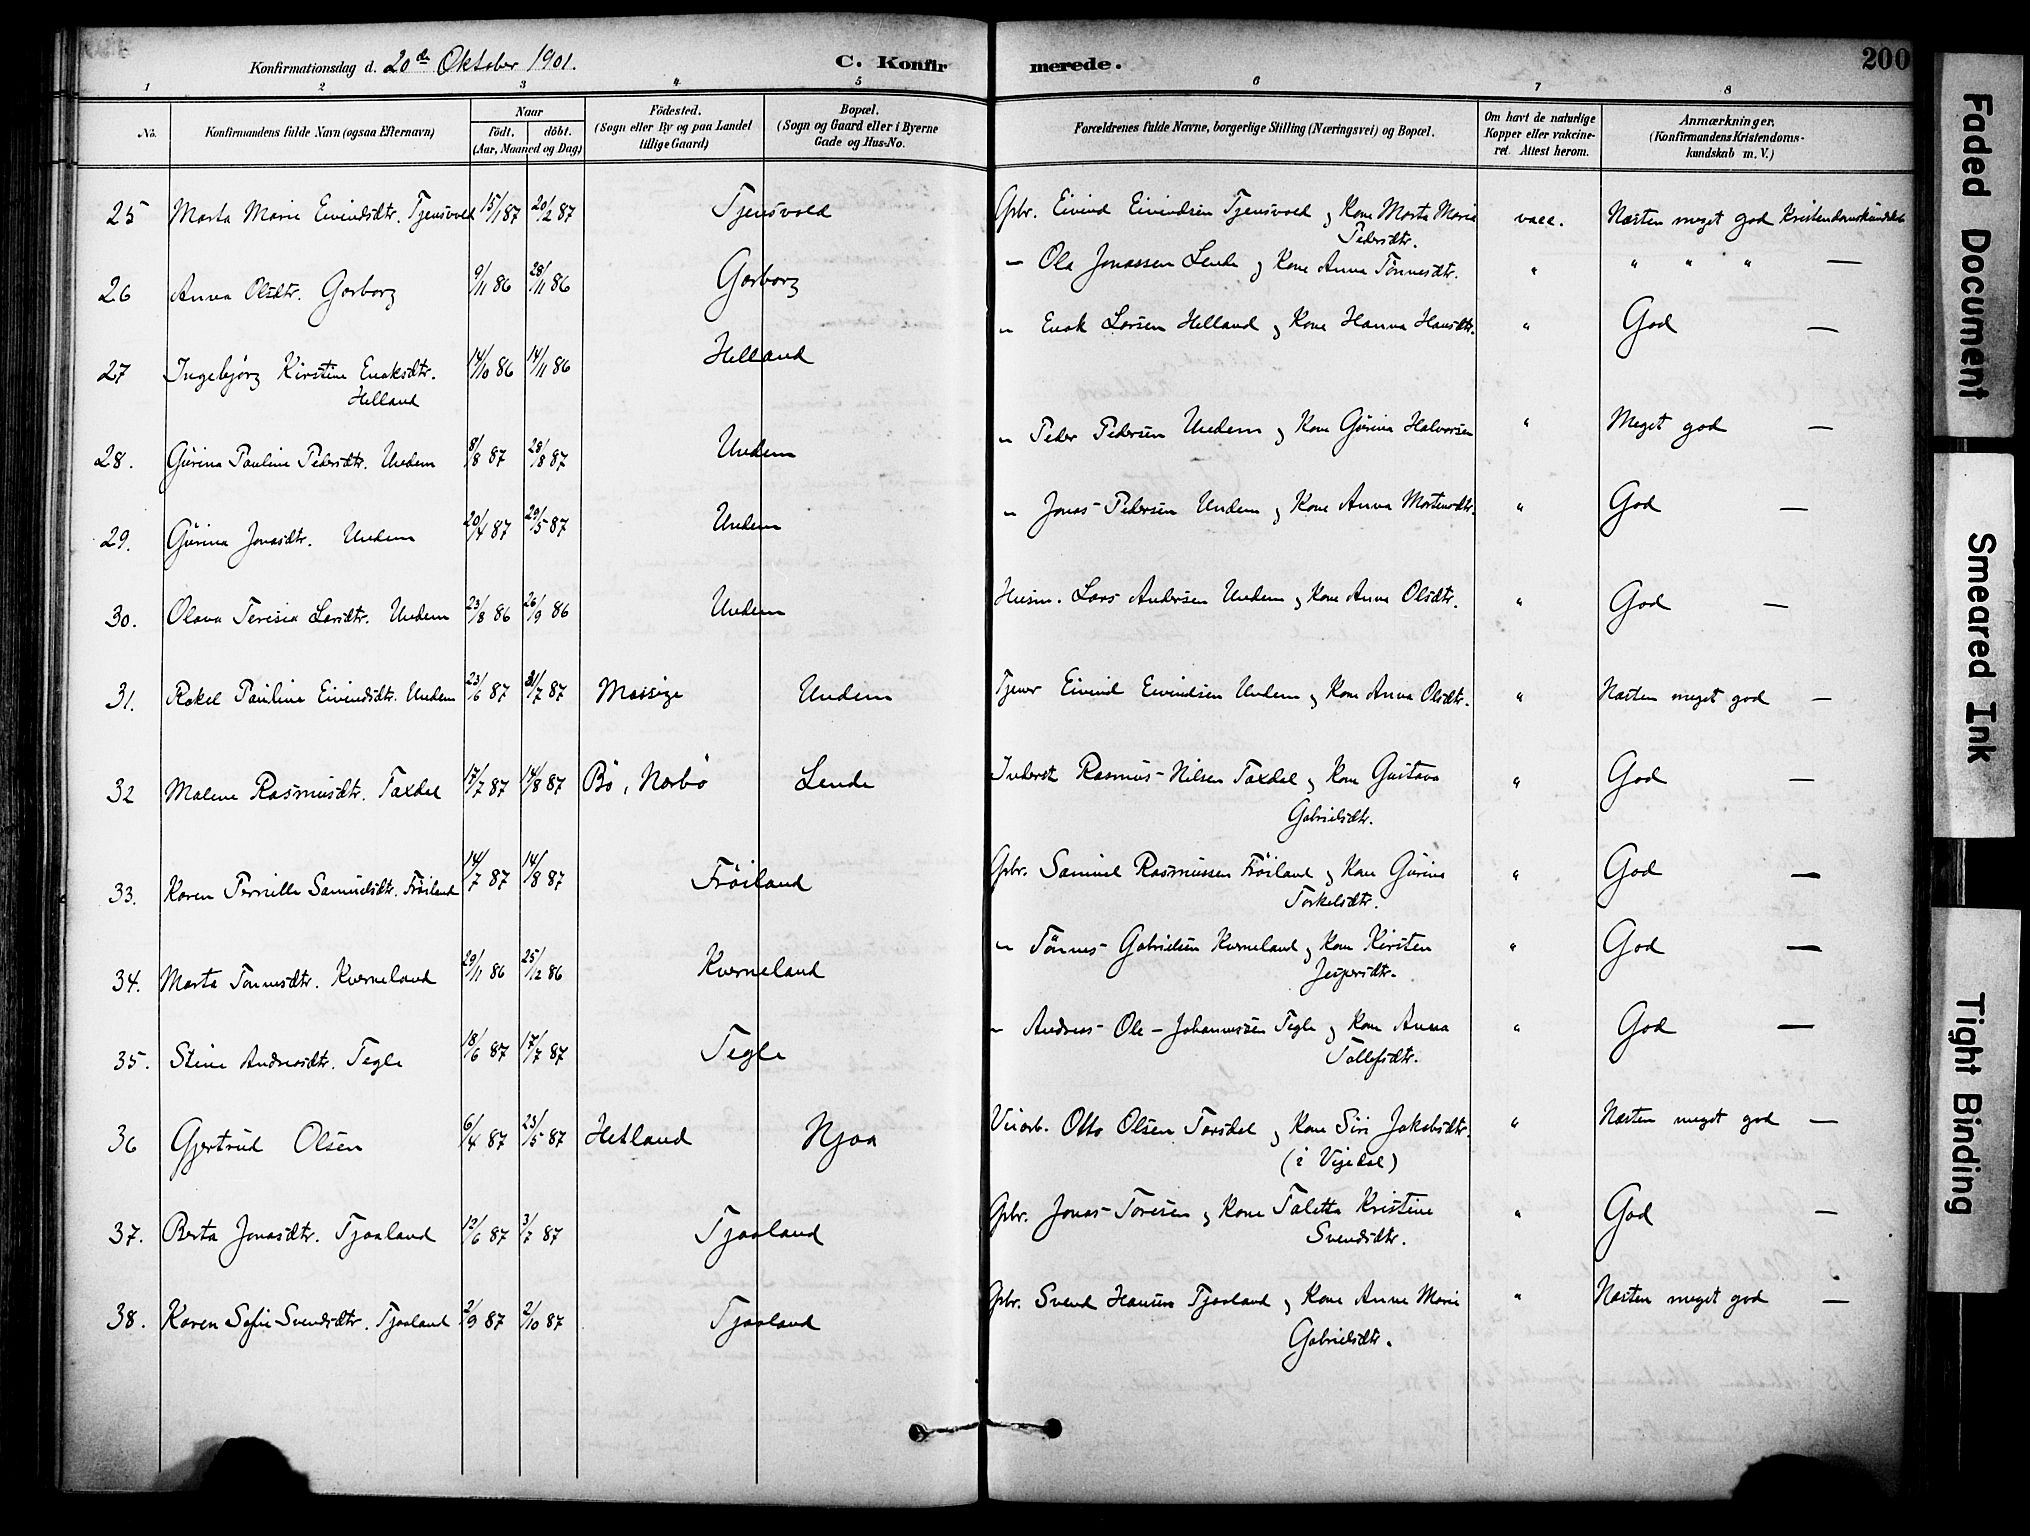 Konfirmationsdag d. 20de Oktober 1901. C. Konfirmerede. 200
1 2 3 4 5 6 7 8
No. Konfirmandens fulde Navn (ogsaa Efternavn) Naar födt. döbt. (Aar, Maaned og Dag) Födested. (Sogn eller By og paa Landet tillige Gaard) Bopæl. (Sogn og Gaard eller i Byerne Gade og Hus-No. Forældrenes fulde Navne, borgerlige Stilling (Næringsvei) og Bopæl. Om havt de naturlige Kopper eller vakcineret. Attest herom. Anmærkninger, (Konfirmandens Kristendomskundskab m. V.)
25 Marta Marie Eivindsdtr. Tjensvold 15/1 87 20/2 87 Tjensvold Gbr. Eivind Eivindsen Tjensvold og Kone Marta Maria vacc. Næsten meget god Kristendomskundskab
Pedersdtr.
26 Anna Olsdtr. Garborg 9/11 86 28/11 86 Garborg – Ola Jonassen Lende og Kone Anna Tönnesdtr. " " " " —
27 Ingebjörg Kirstine Enoksdtr. 14/10 86 14/11 86 Helland – Enok Larsen Helland og Kone Hanna Hansdtr. " God —
Helland
28. Gurina Pauline Pedersdtr. Undem 8/8 87 28/8 87 Undem – Peder Pedersen Undem og Kone Gurina Halvorsen " Meget god —
29. Gurina Jonasdtr. Undem 20/4 87 29/5 87 Undem – Jonas Pedersen Undem og Kone Anna Mortensdtr. " God —
30. Olava Teresia Larsdtr. Undem 23/8 86 26/9 86 Undem Husm. Lars Andersen Undem og Kone Anna Olsdtr. " God —
31. Rakel Pauline Eivindsdtr. Undem 23/6 87 31/7 87 Massige Undem Tjener Eivind Eivindsen Undem og Kone Anna Olsdtr. " Næsten meget god —
32 Malene Rasmusdtr. Taxdal 17/7 87 14/8 87 Bö, Nærbö Lende Inderst Rasmus Nilsen Taxdal og Kone Gustava " God —
Gabrielsdtr.
33. Karen Pernille Samuelsdtr. Fröiland 14/7 87 14/8 87 Fröiland Gbr. Samuel Rasmussen Fröiland og Kone Gurina " God —
Torkelsdtr.
34. Marta Tönnesdtr. Kverneland 29/11 86 25/12 86 Kverneland – Tönnes Gabrielsen Kverneland og Kone Kirsten " God —
Jespersdtr.
35. Stine Andreasdtr. Tegle 18/6 87 17/7 87 Tegle – Andreas Ole Johannessen Tegle og Kone Anna " God —
Tollefsdtr.
36 Gjertrud Olsen 6/4 87 23/5 87 Hetland Njaa Veiarb. Otto Olsen Torsdal og Kone Siri Jakobsdtr. " Næsten meget god —
(i Vigedal)
37. Berta Jonasdtr. Tjaaland 12/6 87 3/7 87 Tjaaland Gbr. Jonas Toresen og Kone Taletta Kristine " God —
Svendsdtr.
38. Karen Sofie Svendsdtr. Tjaaland 2/9 87 2/10 87 Tjaaland Gbr. Svend Hansen Tjaaland og Kone Anne Marie " Næsten meget god —
Gabrielsdtr.
Faded Document
Smeared Ink
Tight Binding